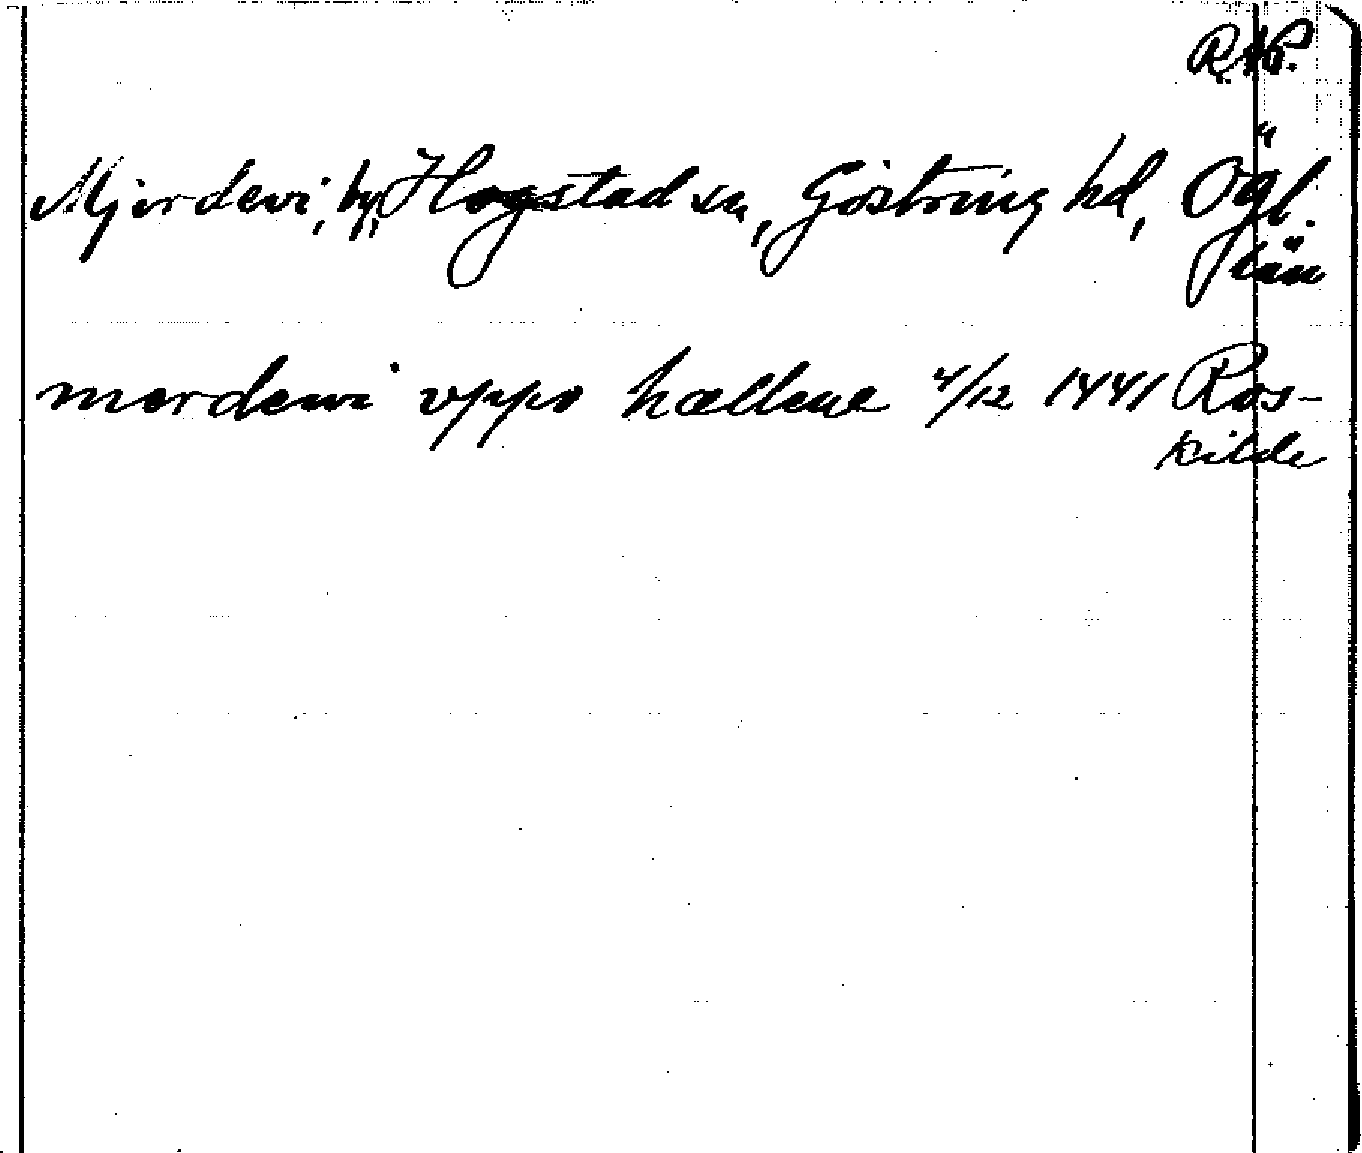 R.A.P.
Mjärdevi, by, Hogstad sn, Göstring hd, Ögl.
län
mærdewi vppo hællene 4/12 1441 Ros-
kilde